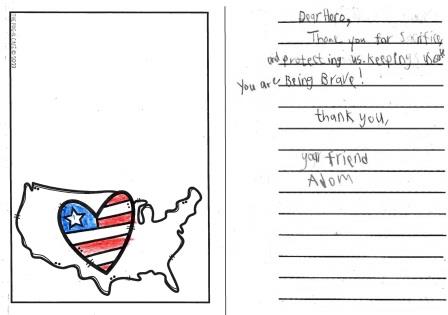 Dear Hero,
Thank you for
and protesting us. keeping us
You are Being Brave!
thank you,
your friend
Adom